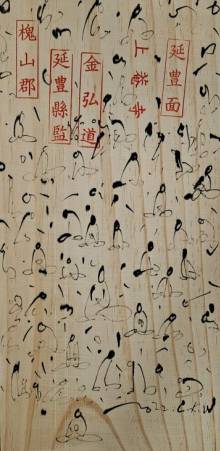 延豊面
上菴寺
金弘道
延豊縣監
槐山郡